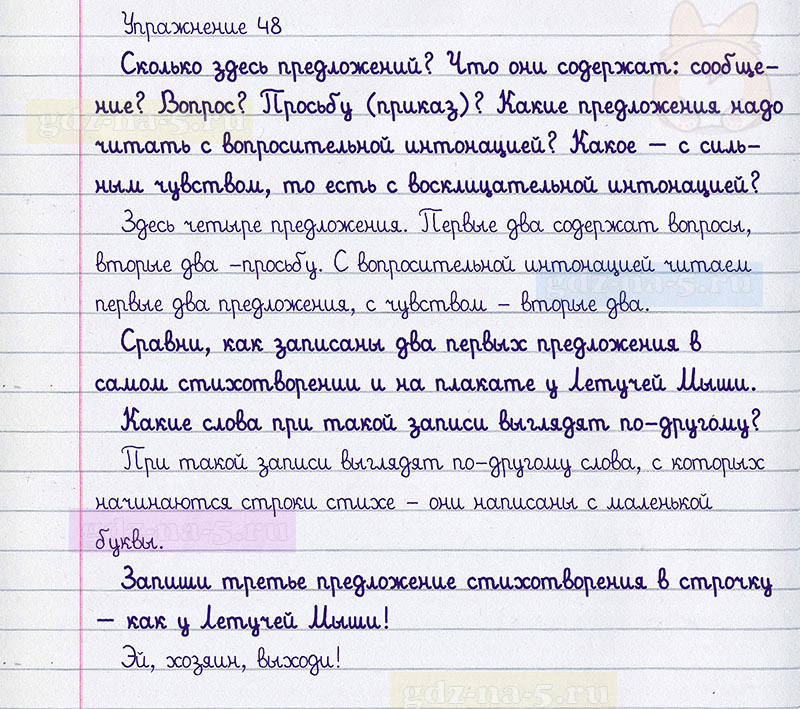 Упражнение 48
Сколько здесь предложений? Что они содержат: сообще-
ние? Вопрос? Просьбу (приказ)? Какие предложения надо
читать с вопросительной интонацией? Какое – с силь-
ным чувством, то есть с восклицательной интонацией?
Здесь четыре предложения. Первые два содержат вопросы,
вторые два –просьбу. С вопросительной интонацией читаем
первые два предложения, с чувством – вторые два.
Сравни, как записаны два первых предложения в
самом стихотворении и на плакате у Летучей Мыши.
Какие слова при такой записи выглядят по-другому?
При такой записи выглядят по-другому слова, с которых
начинаются строки стихе – они написаны с маленькой
буквы.
Запиши третье предложение стихотворения в строчку
– как у Летучей Мыши!
Эй, хозяин, выходи!
gdz-na-5.ru
gdz-na-5.ru
gdz-na-5.ru
gdz-na-5.ru